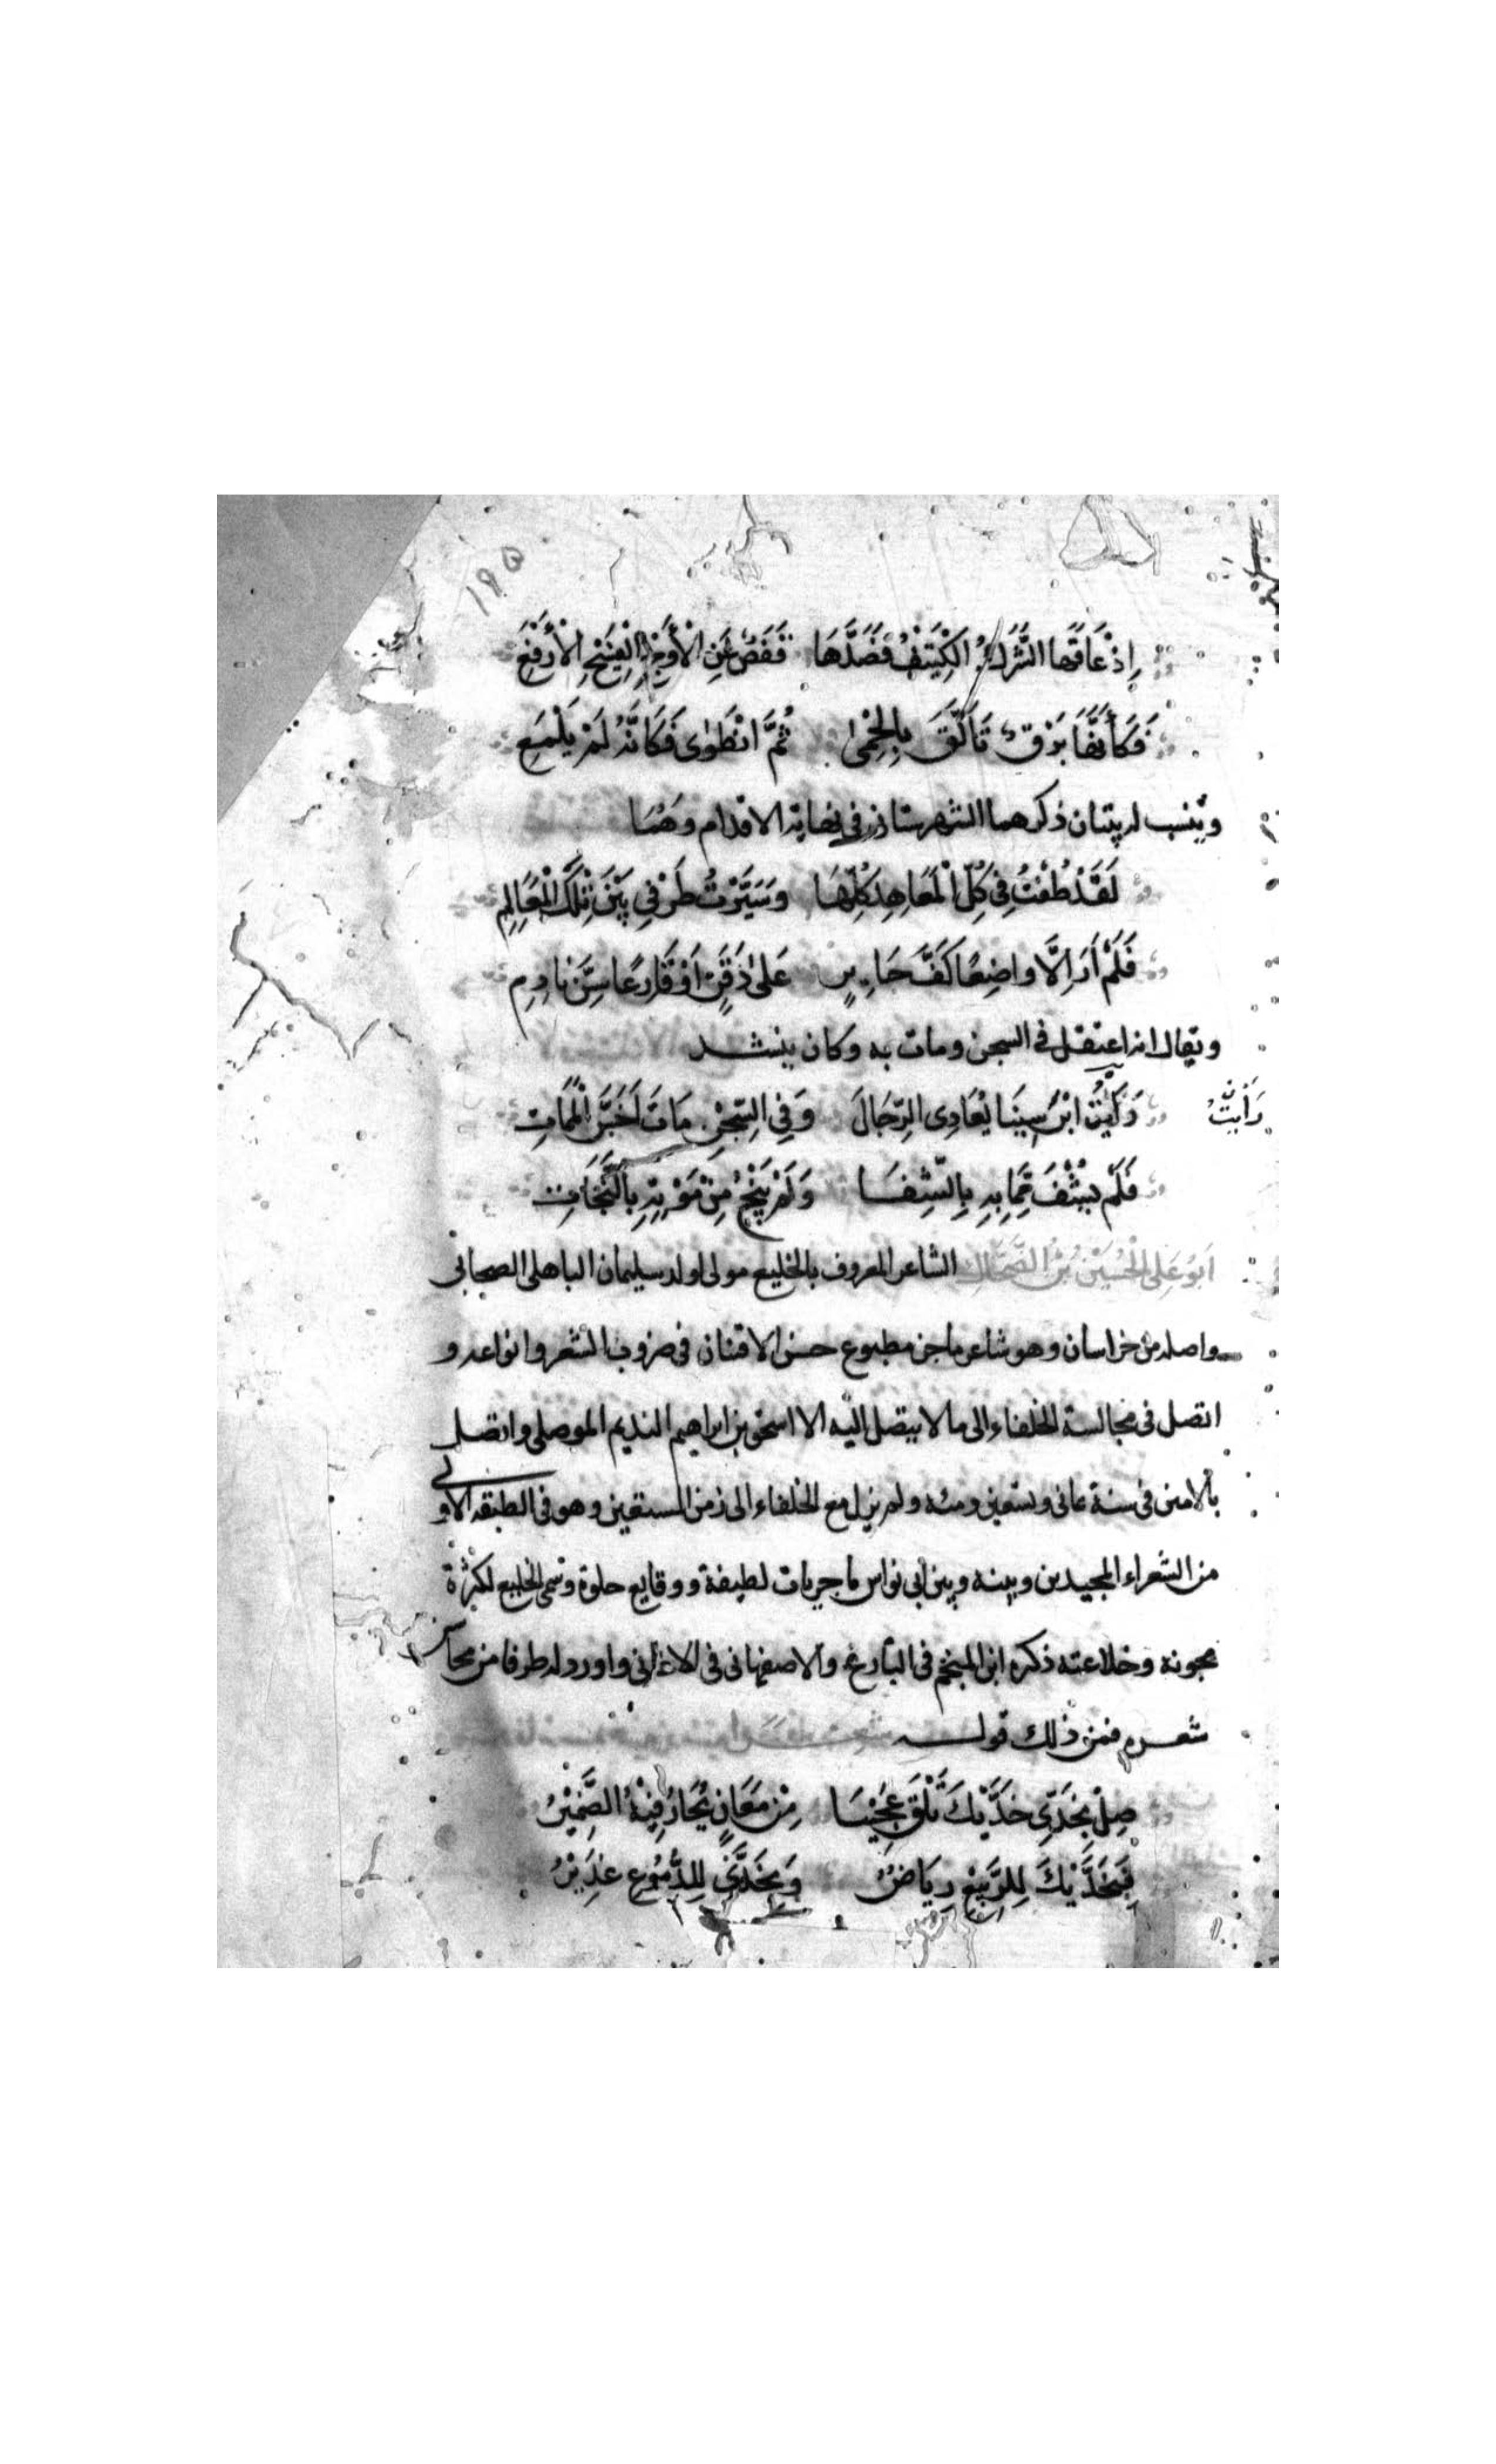 ١٩٥
إِذْ عَاقَهَا الشَّرَكُ الكَثِيفُ فَصَدَّهَا قَفَصٌ عَنِ الْأَوْجِ الْفَسِيحِ الْأَرْفَعِ
فَكَأَنَّهَا بَرْقٌ تَأَلَّقَ بِالْحِمٰى ثُمَّ انْطَوٰى فَكَأَنَّهُ لَمْ يَلْمَعِ
وينسب له بيتان ذكرهما الشهرستانى فى نهاية الاقدام وهما
لَقَدْ طُفْتُ فِي كُلِّ الْمَعَاهِدِ كُلِّهَا وَسَيَّرْتُ طَرْفِي بَيْنَ تِلْكَ الْمَعَالِمِ
فَلَمْ أَرَ اِلَّا وَاضِعًا كَفَّ حَايِرٍ عَلىٰ ذَقَنٍ اَوْ قَارِعًا سِنَّ نَادِمِ
ويقال انه اعتقل فى السجن ومات به وكان ينشد
رَأَيْتُ ابْنَ سِينَا يُعَادِى الرِّجَالَ وَفِي السِّجْنِ مَاتَ اَخَسَّ الْمَمَاتِ
رَأَيْتُ
فَلَمْ يَشْفَ مَا بِهِ بِالشِّفَا وَلَمْ يَنْجُ مِنْ مَوْتِهِ بِالنَّجَاتِ
اَبُو عَلِى الْحُسَيْنُ بْنُ الضَّحَّاك الشاعر المعروف بالخليع مولى اولد سليمان الباهلى الصحابى
واصله من خراسان وهو شاعر ماجن مطبوع حسن الافتنان فى ضروب الشعر وانواعه و
اتصل فى مجالسة الخلفاء الى ما لا يتصل اليه الا اسحق بن ابراهيم النديم الموصلى واتصل
بالامين فى سنة ثمانى وتسعين ومئه ولم يزل مع الخلفاء الى زمن المستعين وهو فى الطبقه الاولى
من الشعراء المجيدين وبينه وبين ابى نواس ماجريات لطيفة ووقايع حلوة وسمى الخليع لكثرة
مجونه وخلاعته ذكره ابن المنجم فى البارع والاصفهانى فى الاغانى واورد له طرفا من محاسن
شعره فمن ذلك قوله
صِلْ بِخَدِّى خَدَّيْكَ تَلْقَ عَجِيْبًا مِنْ مَعَانٍ يُحَارُ فِيْهَا الضَّمِيْرُ
فَبِخَدَّيْكَ لِلرَّبِيْعِ رِيَاضٌ وَبِخَدَّيَّ لِلدُّمُوعِ غَدِيْرُ